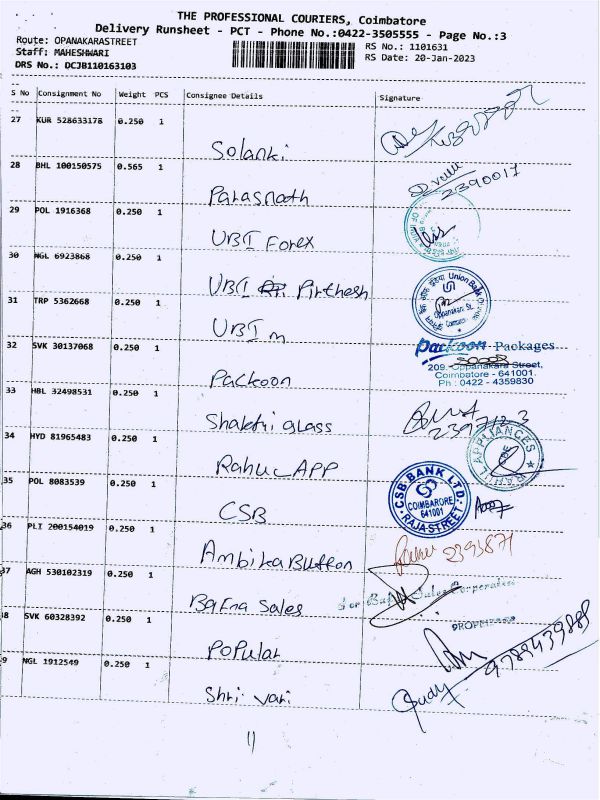 THE PROFESSIONAL COURIERS, Coimbatore
Delivery Runsheet - PCT - Phone No.:0422-3505555 - Page No.:3
Route: OPANAKARASTREET
Staff: MAHESHWARI
DRS No.: DCJB110163103
RS No.: 1101631
RS Date: 20-Jan-2023
S No Consignment No Weight PCS Consignee Details Signature
27 KUR 528633178 0.250 1
Solanki
28 BHL 100150575 0.565 1
Parasnath
2390017
29 POL 1916368 0.250 1
UBI Forex
30 NGL 6923868 0.250 1
UBI Pirthesh
Union Bank
Oppanakara St.
31 TRP 5362668 0.250 1
UBI m
32 SVK 30137068 0.250 1
Packoon
Packoon Packages
209, Oppanakara Street,
Coimbatore - 641001.
Ph : 0422 - 4359830
33 HBL 32498531 0.250 1
Shakthi Glass
34 HYD 81965483 0.250 1
Rahul APP
RAHUL APPLIANCES
35 POL 8083539 0.250 1
CSB
CSB BANK LTD
COIMBARORE
641001
RAJA STREET
36 PLI 200154019 0.250 1
Ambika Button
2393871
37 AGH 530102319 0.250 1
Bafna Sales
For Bafna Sales Corporation
8 SVK 60328392 0.250 1
Popular
9789439888
9 NGL 1912549 0.250 1
Shri vari
11